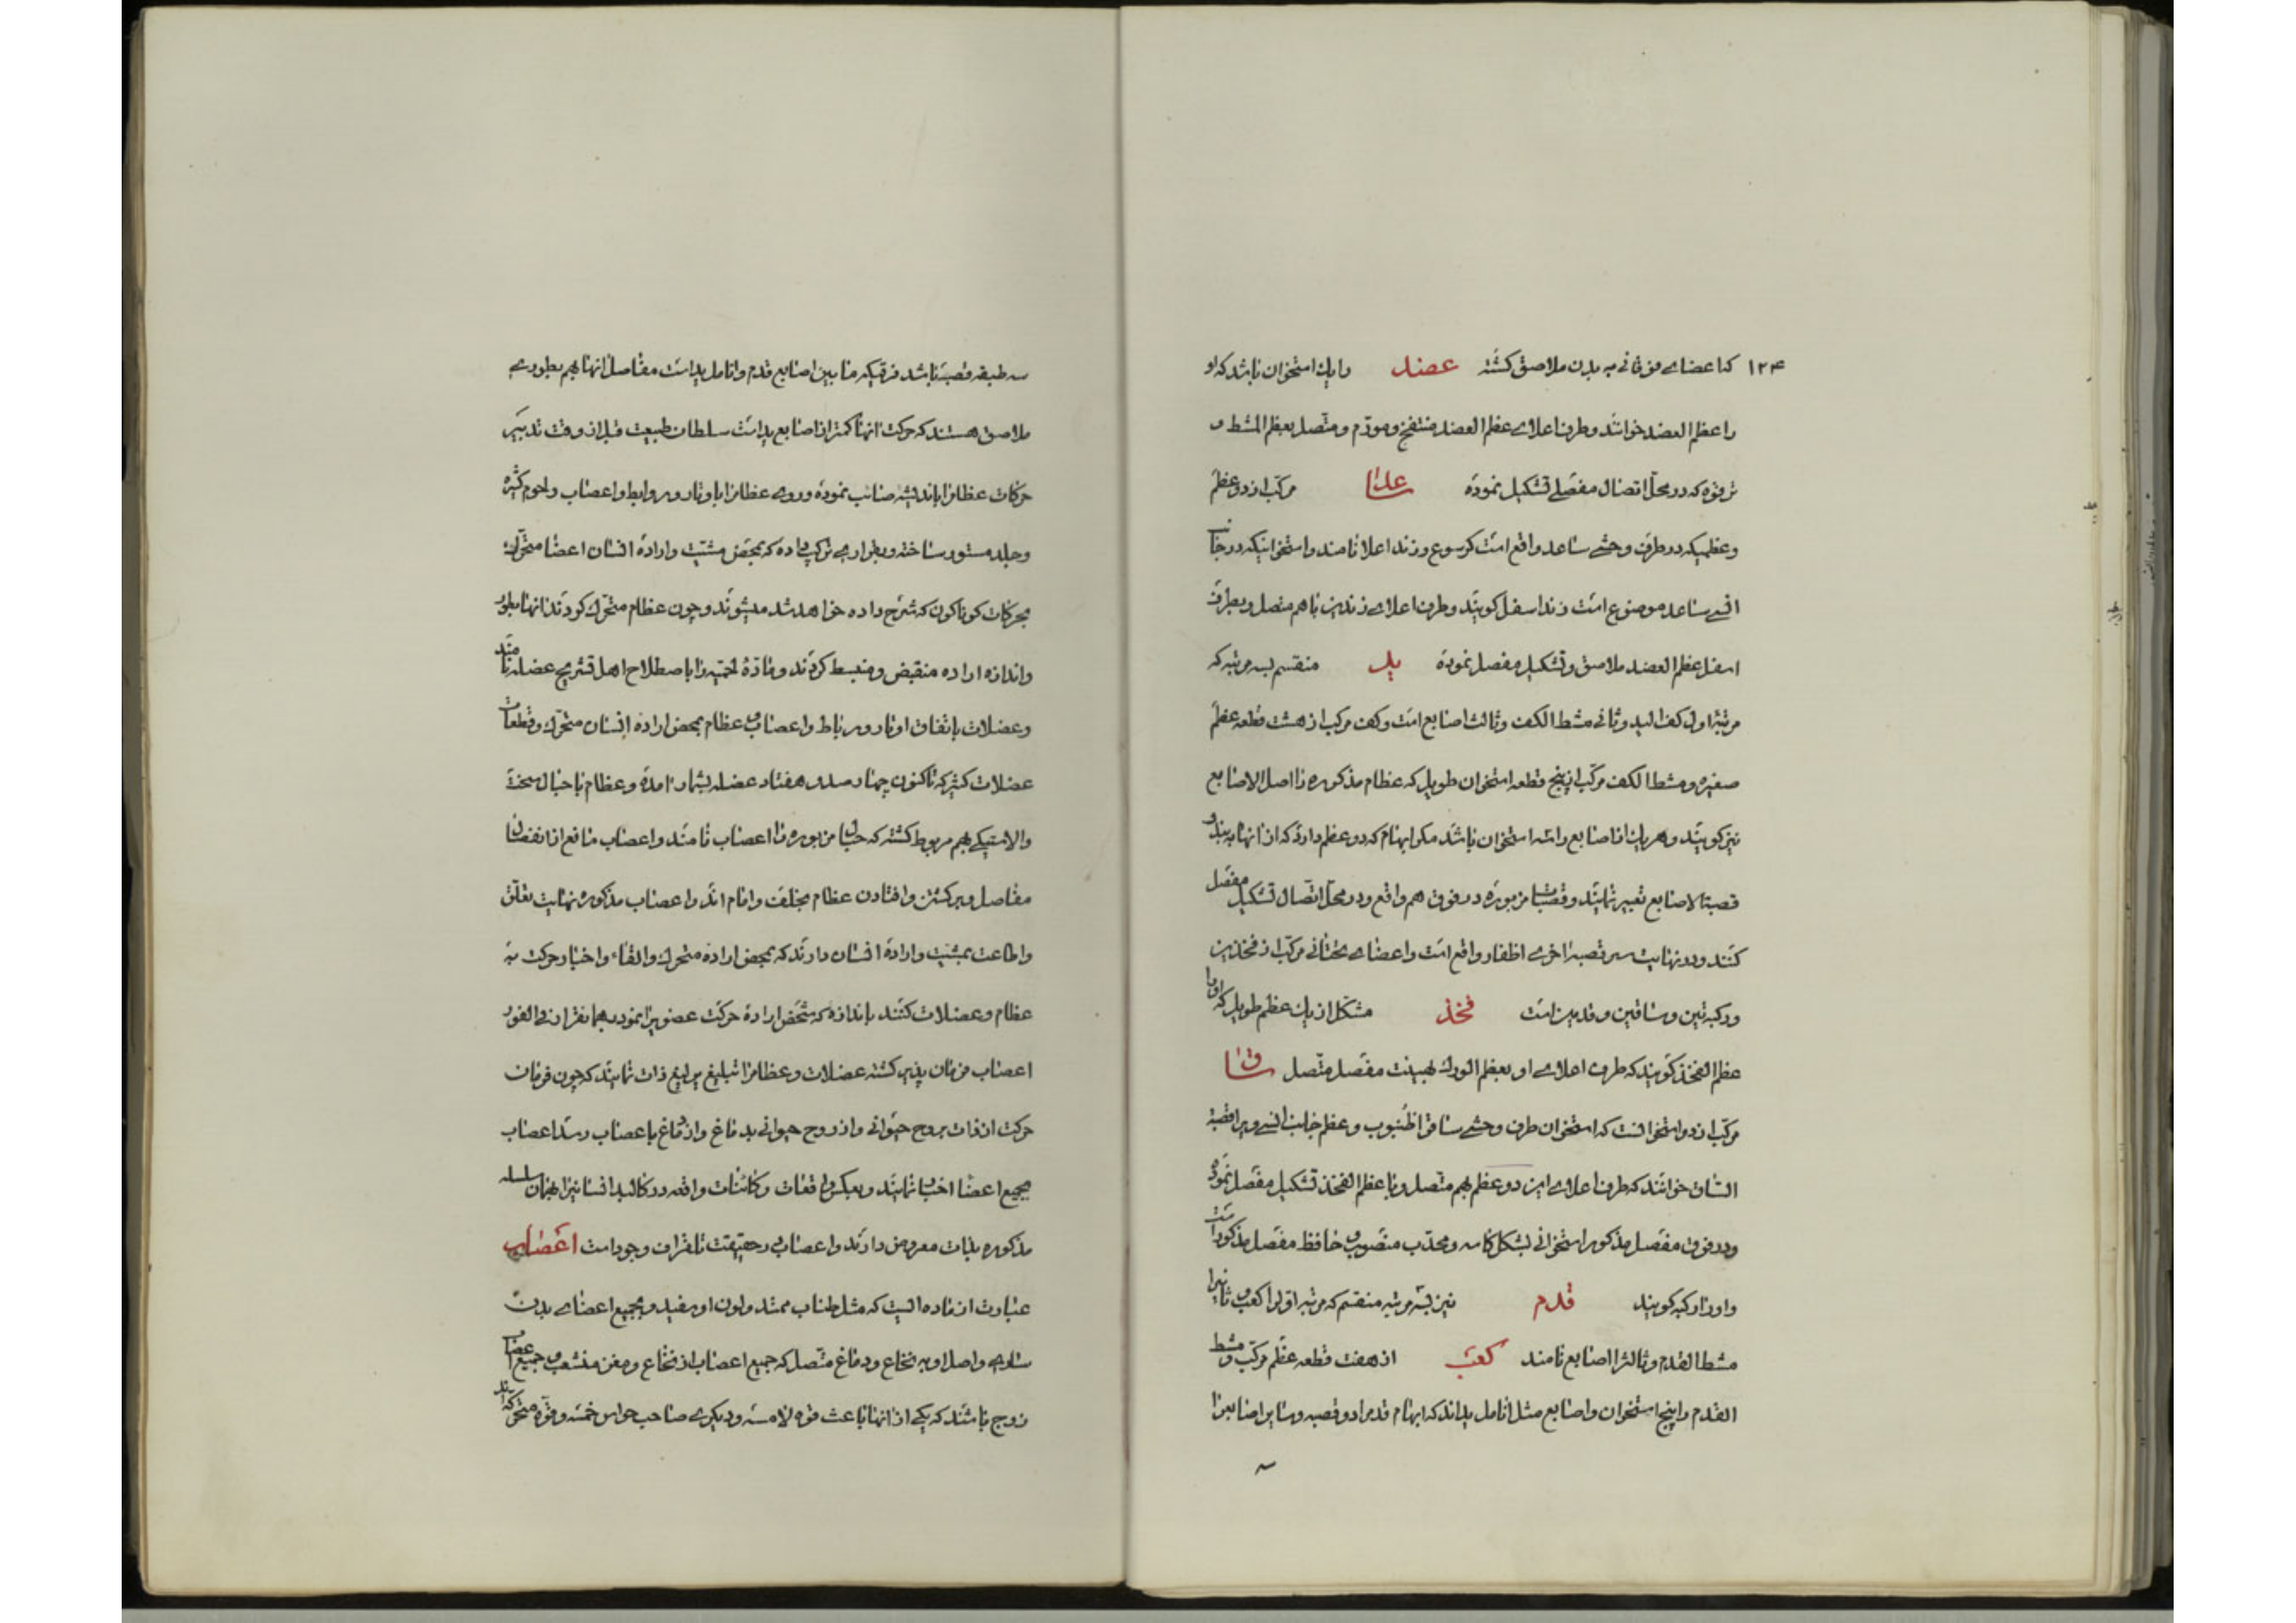 ۱۲۴ کتا عضای فوقانی به بدن ملاصق کشته عضد را یك استخوان باشد که او
را عظم العضد خوانند و طرف اعلای عظم العضد منتفخ و مورّم و متّصل بعظم المشط و
ترقوه که در محلّ اتصال مفصلی تشکیل نموده ساعد مرکّب از دو عظم
و عظمیکه در طرف وحشی ساعد واقع است کرسوع و زند اعلا نامند و استخوانیکه در جانب
انسی ساعد موضوع است زند اسفل کویند و طرف اعلای زندین باهم متصل و بطرف
اسفل عظم العضد ملاصق و تشکیل مفصل نموده ید منقسم بسه مرتبه که
مرتبه اولی کف الید و ثانی مشط الکف و ثالث اصابع است و کف مرکب از هشت قطعه عظم
صغیره و مشط الکف مرکّب از پنج قطعه استخوان طویل که عظام مذکوره را اصل الاصابع
نیز کویند و هر یك از اصابع را سه استخوان باشد مکر ابهام که دو عظم دارد که از انها به بند و
قصبة الاصابع تعبیر نمایند و قصبات مزبوره در فوق هم واقع و در محلّ اتّصال تشکیل مفصل
کنند و در نهایت سر قصبه اخری اظفار واقع است و اعضای تحتانی مرکّب از فخذین
و رکبتین و ساقین و قدمین است فخذ مشکّل از یك عظم طویل که او را
عظم الفخذ کویند که طرف اعلای او بعظم الورك بهیئت مفصل متّصل ساق
مرکّب از دو استخوانست که استخوان طرف وحشی ساق را ظنبوب و عظم جانب انسی ویرا قصبة
الساق خوانند که طرف اعلای این دو عظم بهم متصل و با عظم الفخذ تشکیل مفصل نموده
و در فوق مفصل مذکور استخوانی بشکل کاسه و محدّب منصوب و حافظ مفصل مذکور است
و او را رکبه کویند قدم نیز بسه مرتبه منقسم که مرتبه اولی را کعب و ثانیرا
مشط القدم و ثالثرا اصابع نامند کعب از هفت قطعه عظم مرکّب و مشط
القدم را پنج استخوان و اصابع مثل انامل یداند که ابهام قدمرا دو قصبه و سایر اصابعرا
سه طبقه قصبه باشد فرقیکه مابین اصابع قدم و انامل یداست مفاصل انها بهم بطوری
ملاصق هستند که حرکت انها کمتر از اصابع یداست سلطان طبیعت قبل از وقت تدبیر
حرکات عظامرا باندیشه صائب نموده و روی عظامرا با اوتار و روابط و اعصاب و لحوم کثیره
و جلد مستور ساخته و بطواری ترکیب داده که بمحض مشیّت و اراده انسان اعضا متحرّك
بحرکات کوناکون که شرح داده خواهد شد میشوند و چون عظام متحرّك کردند انها بطور
و اندازه اراده منقبض و منبسط کردند و مادّهٔ لحمیه را باصطلاح اهل تشریح عضله نامند
و عضلات باتفاق اوتار و رباط و اعصاب و عظام بمحض اراده انسان متحرّك و قطعات
عضلات کثیر که تاکنون چهار صد و هفتاد عضله بشمار آمده و عظام با حبال سخت
و الاستیکی بهم مربوط کشته که حبال مزبوره را اعصاب نامند و اعصاب مانع از انفصال
مفاصل و برکشتن و افتادن عظام مختلف و اند و اعصاب مذکوره نهایت تعلّق
و اطاعت بمشیّت و ارادهٔ انسان دارند که بمحض اراده متحرك و القاء و اخبار حرکت به
عظام و عضلات کنند باندازه که شخص ارادهٔ حرکت عضویرا نمود بهمانقرار فی الفور
اعصاب فرمان پذیر کشته عضلات و عظامرا تبلیغ یرلیغ ذات نمایند که چون فرمان
حرکت از ذات بروح حیوانی و از روح حیوانی بدماغ و از دماغ باعصاب رسد اعصاب
بجمیع اعضا اخبار نمایند و بعکس واقعات و کائنات واقعه در کالبد انسانیرا بهمان سلسله
مذکوره بذات معروض دارند و اعصاب در حقیقت تلغراف وجود است اعصاب
عبارت از ماده ایست که مثل طناب ممتد و لون او سفید و بجمیع اعضای بدن
ساری و اصل او به نخاع و دماغ متّصل که جمیع اعصاب از نخاع و مغز منشعب و جمیع اعصاب
زوج باشند که یکی از انها باعث قوه لامسه و دیکری صاحب حواس خمسه و قوّه متحرکه اند